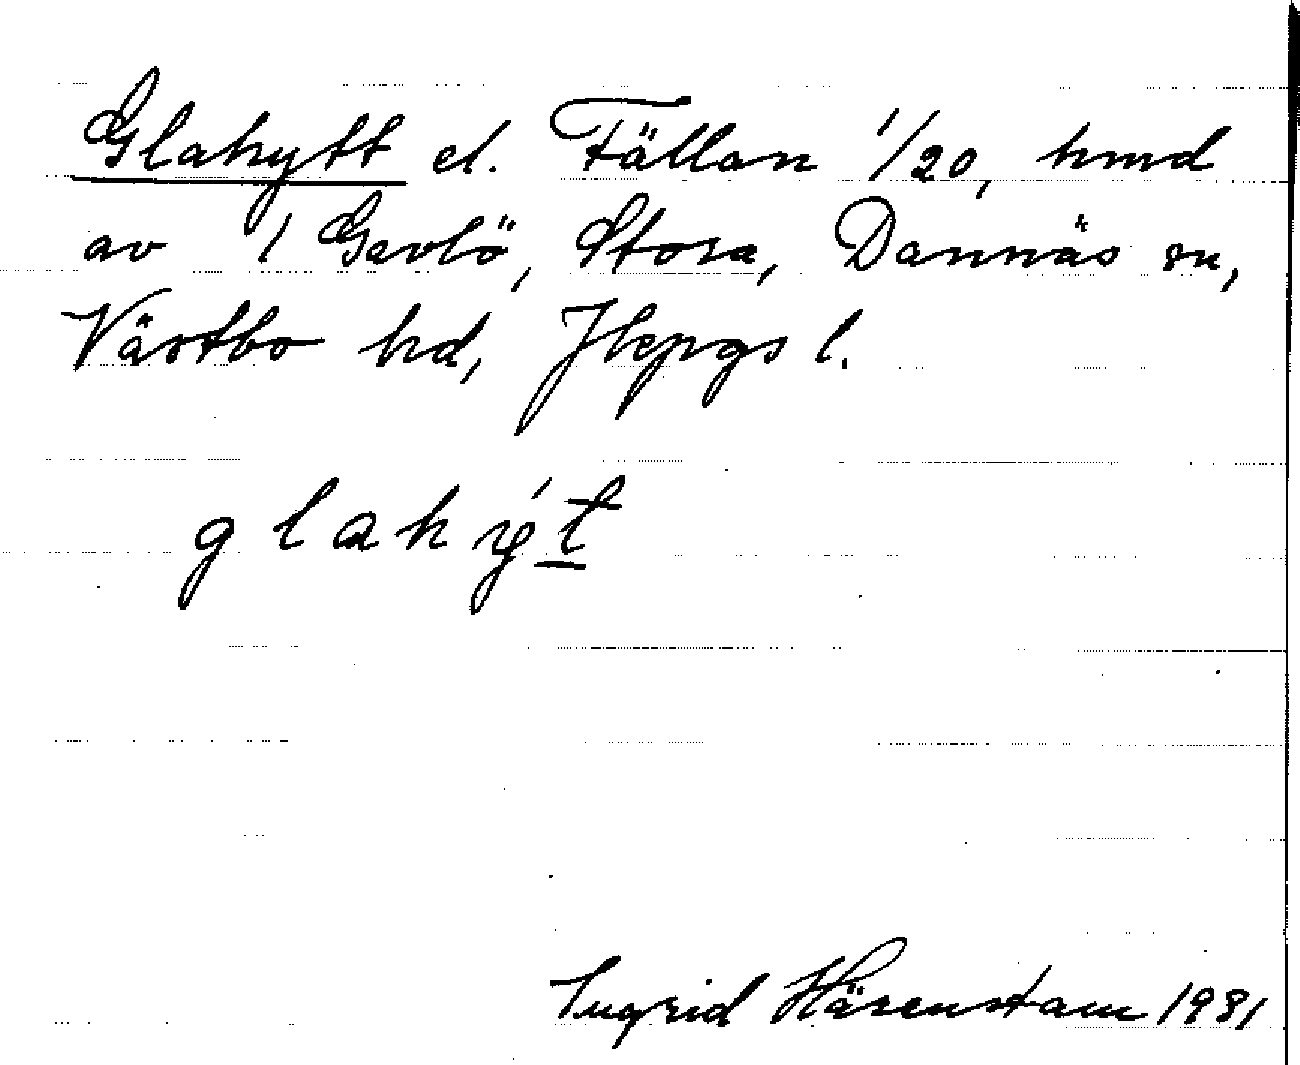 Glahytt el. Fällan 1/20, hmd
av 1 Gavlö, Stora, Dannäs sn,
Västbo hd, Jkpgs l.
glahýt
Ingrid Härenstam 1931